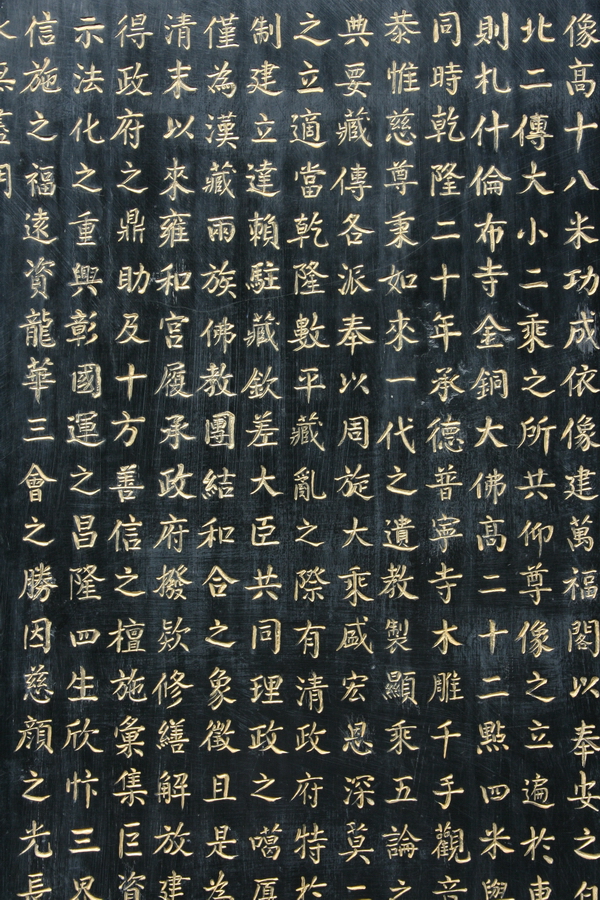 像高十八米功成依像建萬福閣以奉安之
北二傳大小二乘之所共仰尊像之立遍於東
則札什倫布寺金銅大佛高二十二點四米與
同時乾隆二十年承德普寧寺木雕千手觀音
恭惟慈尊秉如來一代之遺教製顯乘五論之
典要藏傳各派奉以周旋大乘盛宏恩深莫二
之立適當乾隆數平藏亂之際有清政府特於
制建立達賴駐藏欽差大臣共同理政之噶厦
僅為漢藏兩族佛教團結和合之象徵且是為
清末以來雍和宮履承政府撥款修繕解放建
得政府之鼎助及十方善信之檀施彙集巨資
示法化之重興彰國運之昌隆四生欣忭三界
信施之福遠資龍華三會之勝因慈顏之光長